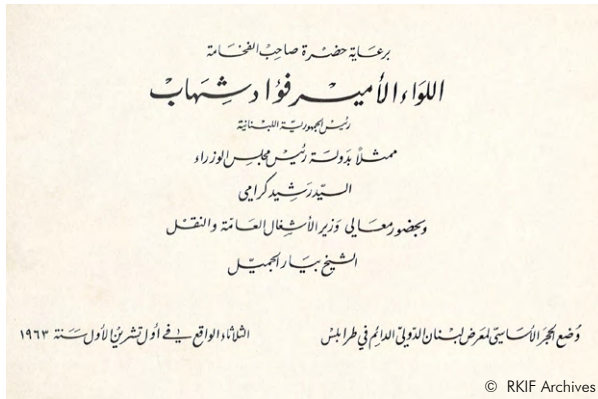 برعاية حضرة صاحب الفخامة
اللواء الأمير فؤاد شهاب
رئيس الجمهورية اللبنانية
ممثلاً بدولة رئيس مجلس الوزراء
السيد رشيد كرامي
وبحضور معالي وزير الأشغال العامة والنقل
الشيخ بيار الجميّل
وُضع الحجر الأساسي لمعرض لبنان الدولي الدائم في طرابلس
الثلاثاء الواقع في أول تشرين الأول سنة ١٩٦٣
© RKIF Archives